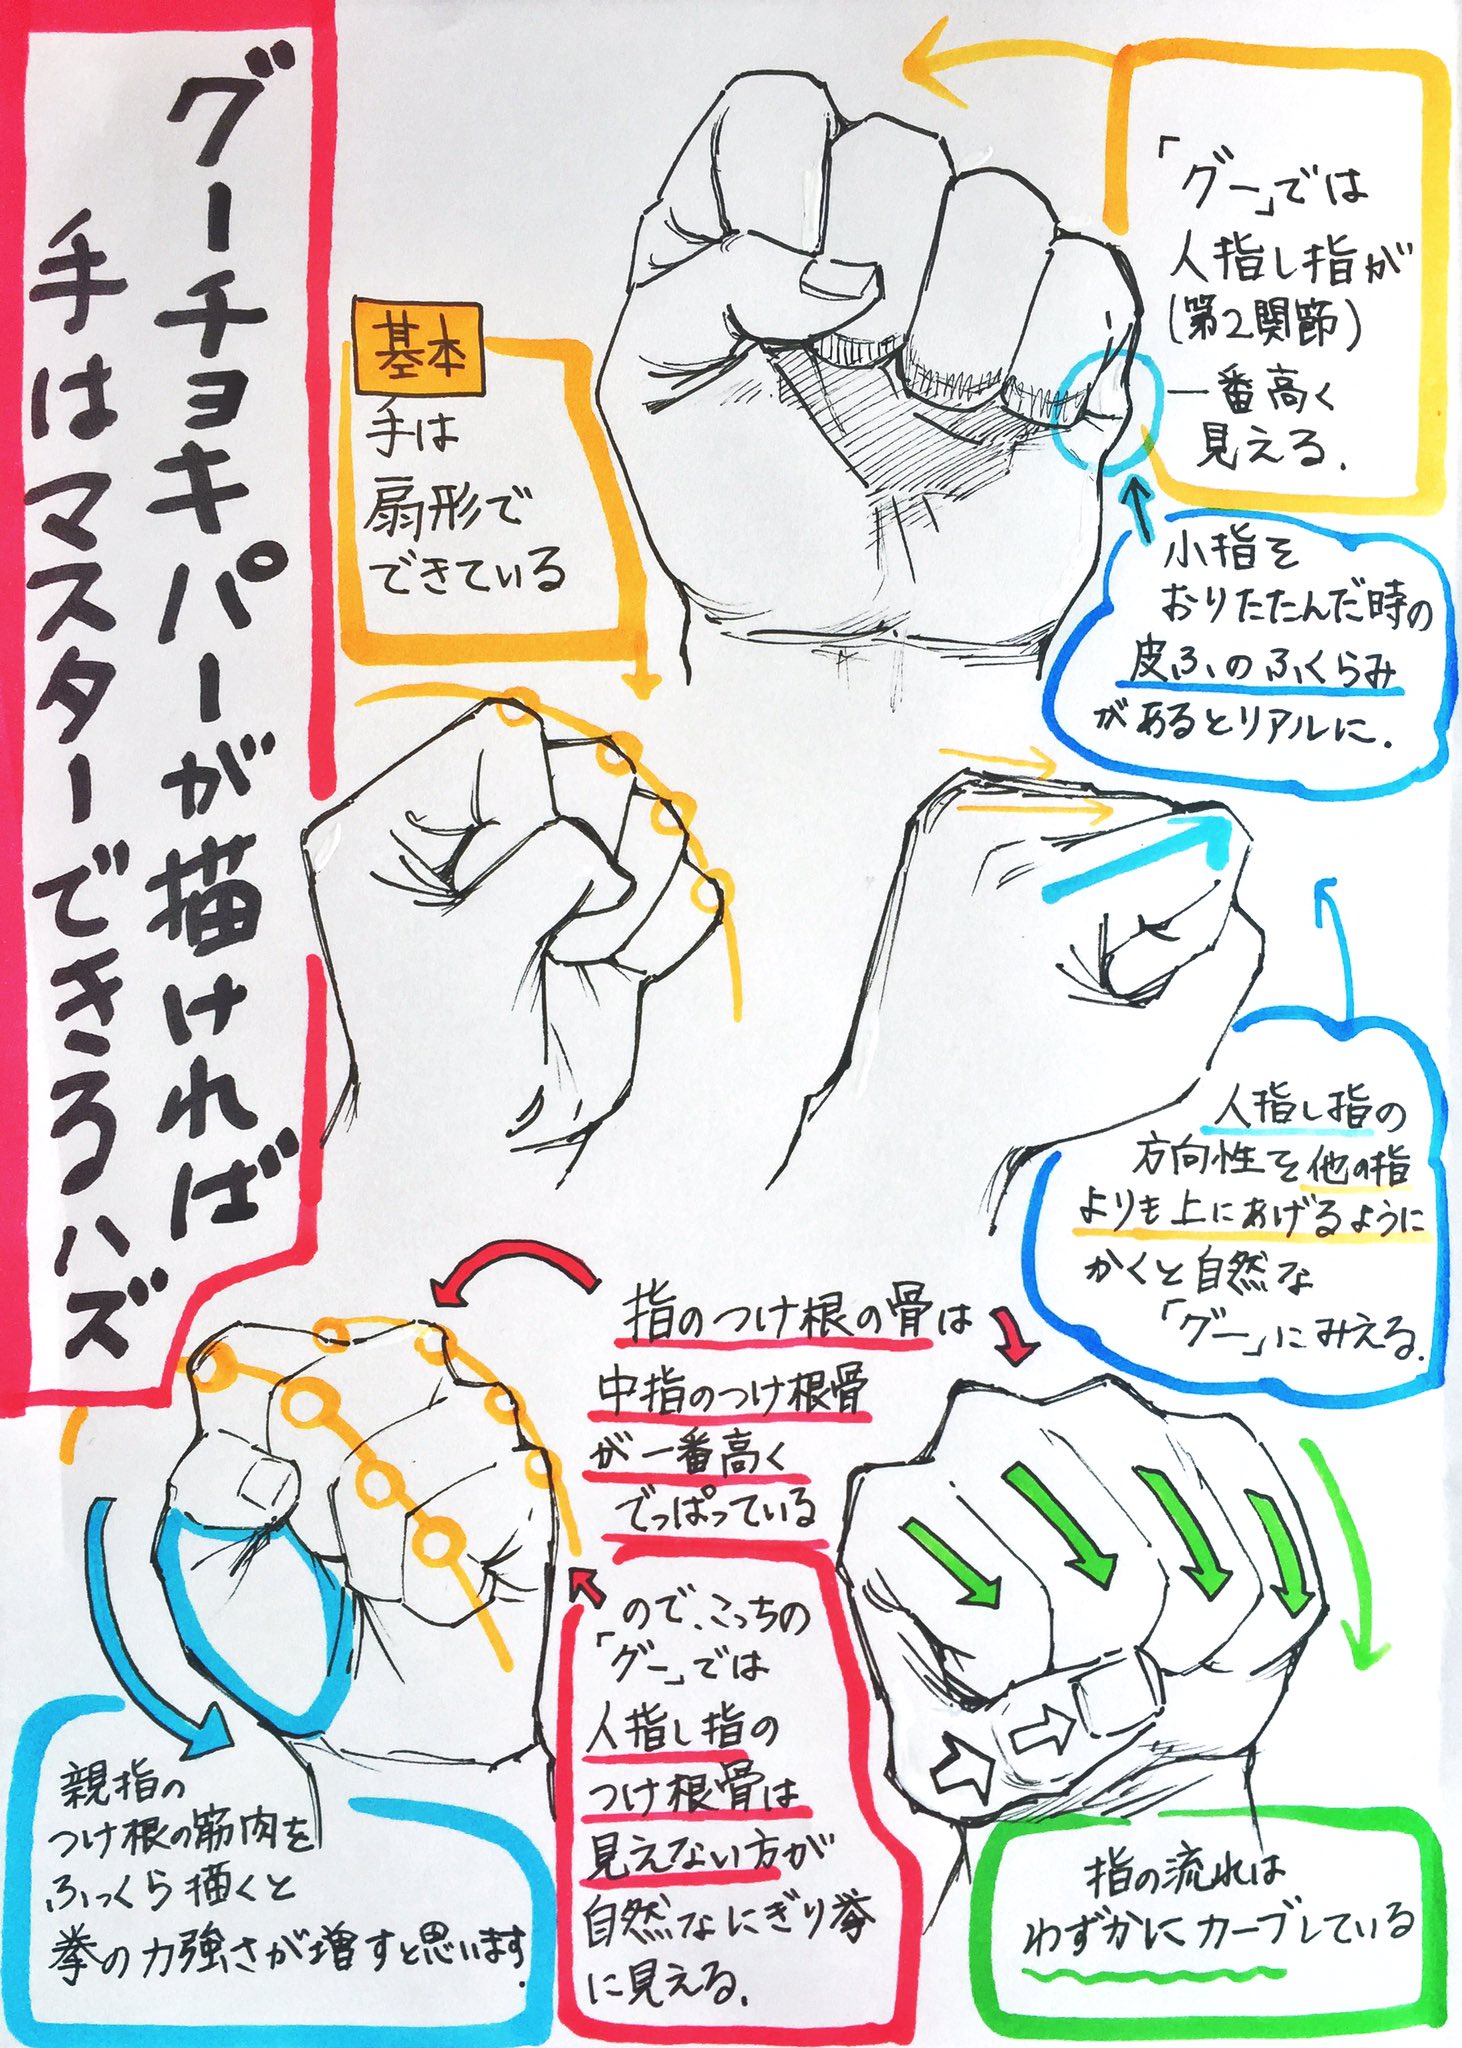 グーチョキパーが描ければ
手はマスターできるハズ
「グー」では
人指し指が
(第2関節)
一番高く
見える.
基本
手は
扇形で
できている
小指を
おりたたんだ時の
皮ふのふくらみ
があるとリアルに.
人指し指の
方向性を他の指
よりも上にあげるように
かくと自然な
「グー」にみえる.
指のつけ根の骨は
中指のつけ根骨
が一番高く
でっぱっている
ので、こっちの
「グー」では
人指し指の
つけ根骨は
見えない方が
自然なにぎり拳
に見える.
親指の
つけ根の筋肉を
ふっくら描くと
拳の力強さが増すと思います.
指の流れは
わずかにカーブしている